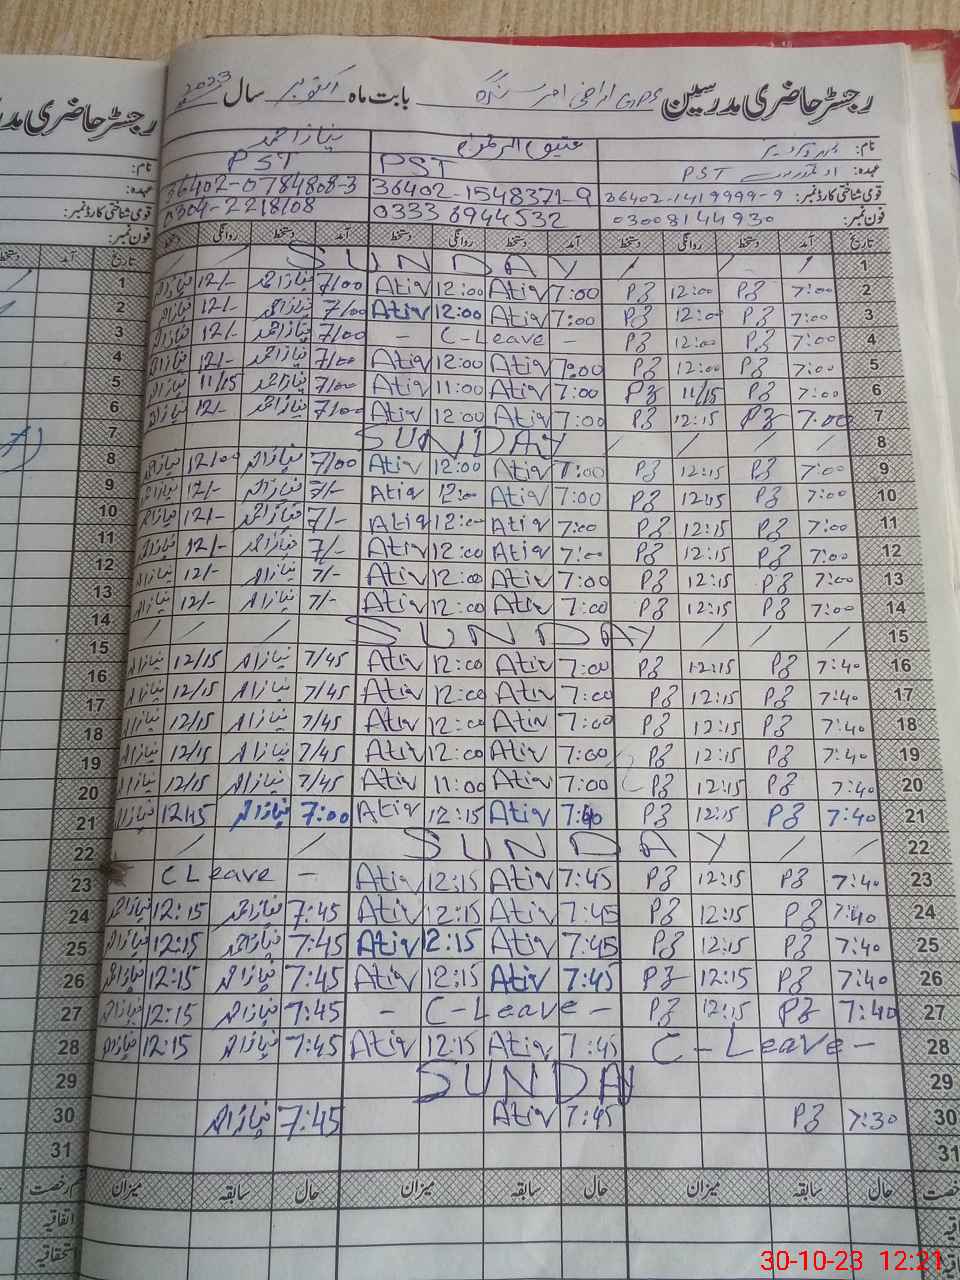 رجسٹر حاضری مدرسین GPS اراضی امیر بابت ماہ اکتوبر سال 2023
نام: عتیق الرحمن نیاز احمد
عہدہ: PST PST PST
قومی شناختی کارڈ نمبر: 36402-1419999-9 36402-1548371-9 36402-0784808-3
فون نمبر: 03008144930 0333 6944532 0304-2218108
تاریخ آمد دستخط روانگی دستخط آمد دستخط روانگی دستخط آمد دستخط روانگی دستخط
1 SUNDAY
2 7:00 12:00 7:00 Atiq 12:00 Atiq 7/00 نیاز احمد 12/- نیاز احمد
3 7:00 12:00 7:00 Atiq 12:00 Atiq 7/00 نیاز احمد 12/- نیاز احمد
4 7:00 12:00 - C-Leave - 7/00 نیاز احمد 12/- نیاز احمد
5 7:00 12:00 7:00 Atiq 12:00 Atiq 7/00 نیاز احمد 12/- نیاز احمد
6 7:00 11/15 7:00 Atiq 11:00 Atiq 7/00 نیاز احمد 11/15 نیاز احمد
7 7:00 12:15 7:00 Atiq 12:00 Atiq 7/00 نیاز احمد 12/- نیاز احمد
8 SUNDAY
9 7:00 12:15 7:00 Atiq 12:00 Atiq 7/00 نیاز احمد 12/00 نیاز احمد
10 7:00 1245 7:00 Atiq 12:00 Atiq 7/- نیاز احمد 12/- نیاز احمد
11 7:00 12:15 7:00 Atiq 12:00 Atiq 7/- نیاز احمد 12/- نیاز احمد
12 7:00 12:15 7:00 Atiq 12:00 Atiq 7/- نیاز احمد 12/- نیاز احمد
13 7:00 12:15 7:00 Atiq 12:00 Atiq 7/- نیاز احمد 12/- نیاز احمد
14 7:00 12:15 7:00 Atiq 12:00 Atiq 7/- نیاز احمد 12/- نیاز احمد
15 SUNDAY
16 7:40 12:15 7:00 Atiq 12:00 Atiq 7/45 نیاز احمد 12/15 نیاز احمد
17 7:40 12:15 7:00 Atiq 12:00 Atiq 7/45 نیاز احمد 12/15 نیاز احمد
18 7:40 12:15 7:00 Atiq 12:00 Atiq 7/45 نیاز احمد 12/15 نیاز احمد
19 7:40 12:15 7:00 Atiq 12:00 Atiq 7/45 نیاز احمد 12/15 نیاز احمد
20 7:40 12:15 7:00 Atiq 11:00 Atiq 7/45 نیاز احمد 12/15 نیاز احمد
21 7:40 12:15 7:40 Atiq 12:15 Atiq 7:00 نیاز احمد 1245 نیاز احمد
22 SUNDAY
23 7:40 12:15 7:45 Atiq 12:15 Atiq C Leave -
24 7:40 12:15 7:45 Atiq 12:15 Atiq 7:45 نیاز احمد 12:15 نیاز احمد
25 7:40 12:15 7:45 Atiq 2:15 Atiq 7:45 نیاز احمد 12:15 نیاز احمد
26 7:40 12:15 7:45 Atiq 12:15 Atiq 7:45 نیاز احمد 12:15 نیاز احمد
27 7:40 12:15 - C-Leave - 7:45 نیاز احمد 12:15 نیاز احمد
28 C-Leave- 7:45 Atiq 12:15 Atiq 7:45 نیاز احمد 12:15 نیاز احمد
29 SUNDAY
30 7:30 7:45 Atiq 7:45 نیاز احمد
31
حال سابقہ میزان حال سابقہ میزان حال سابقہ میزان
اتفاقیہ
استحقاقیہ
30-10-23 12:21